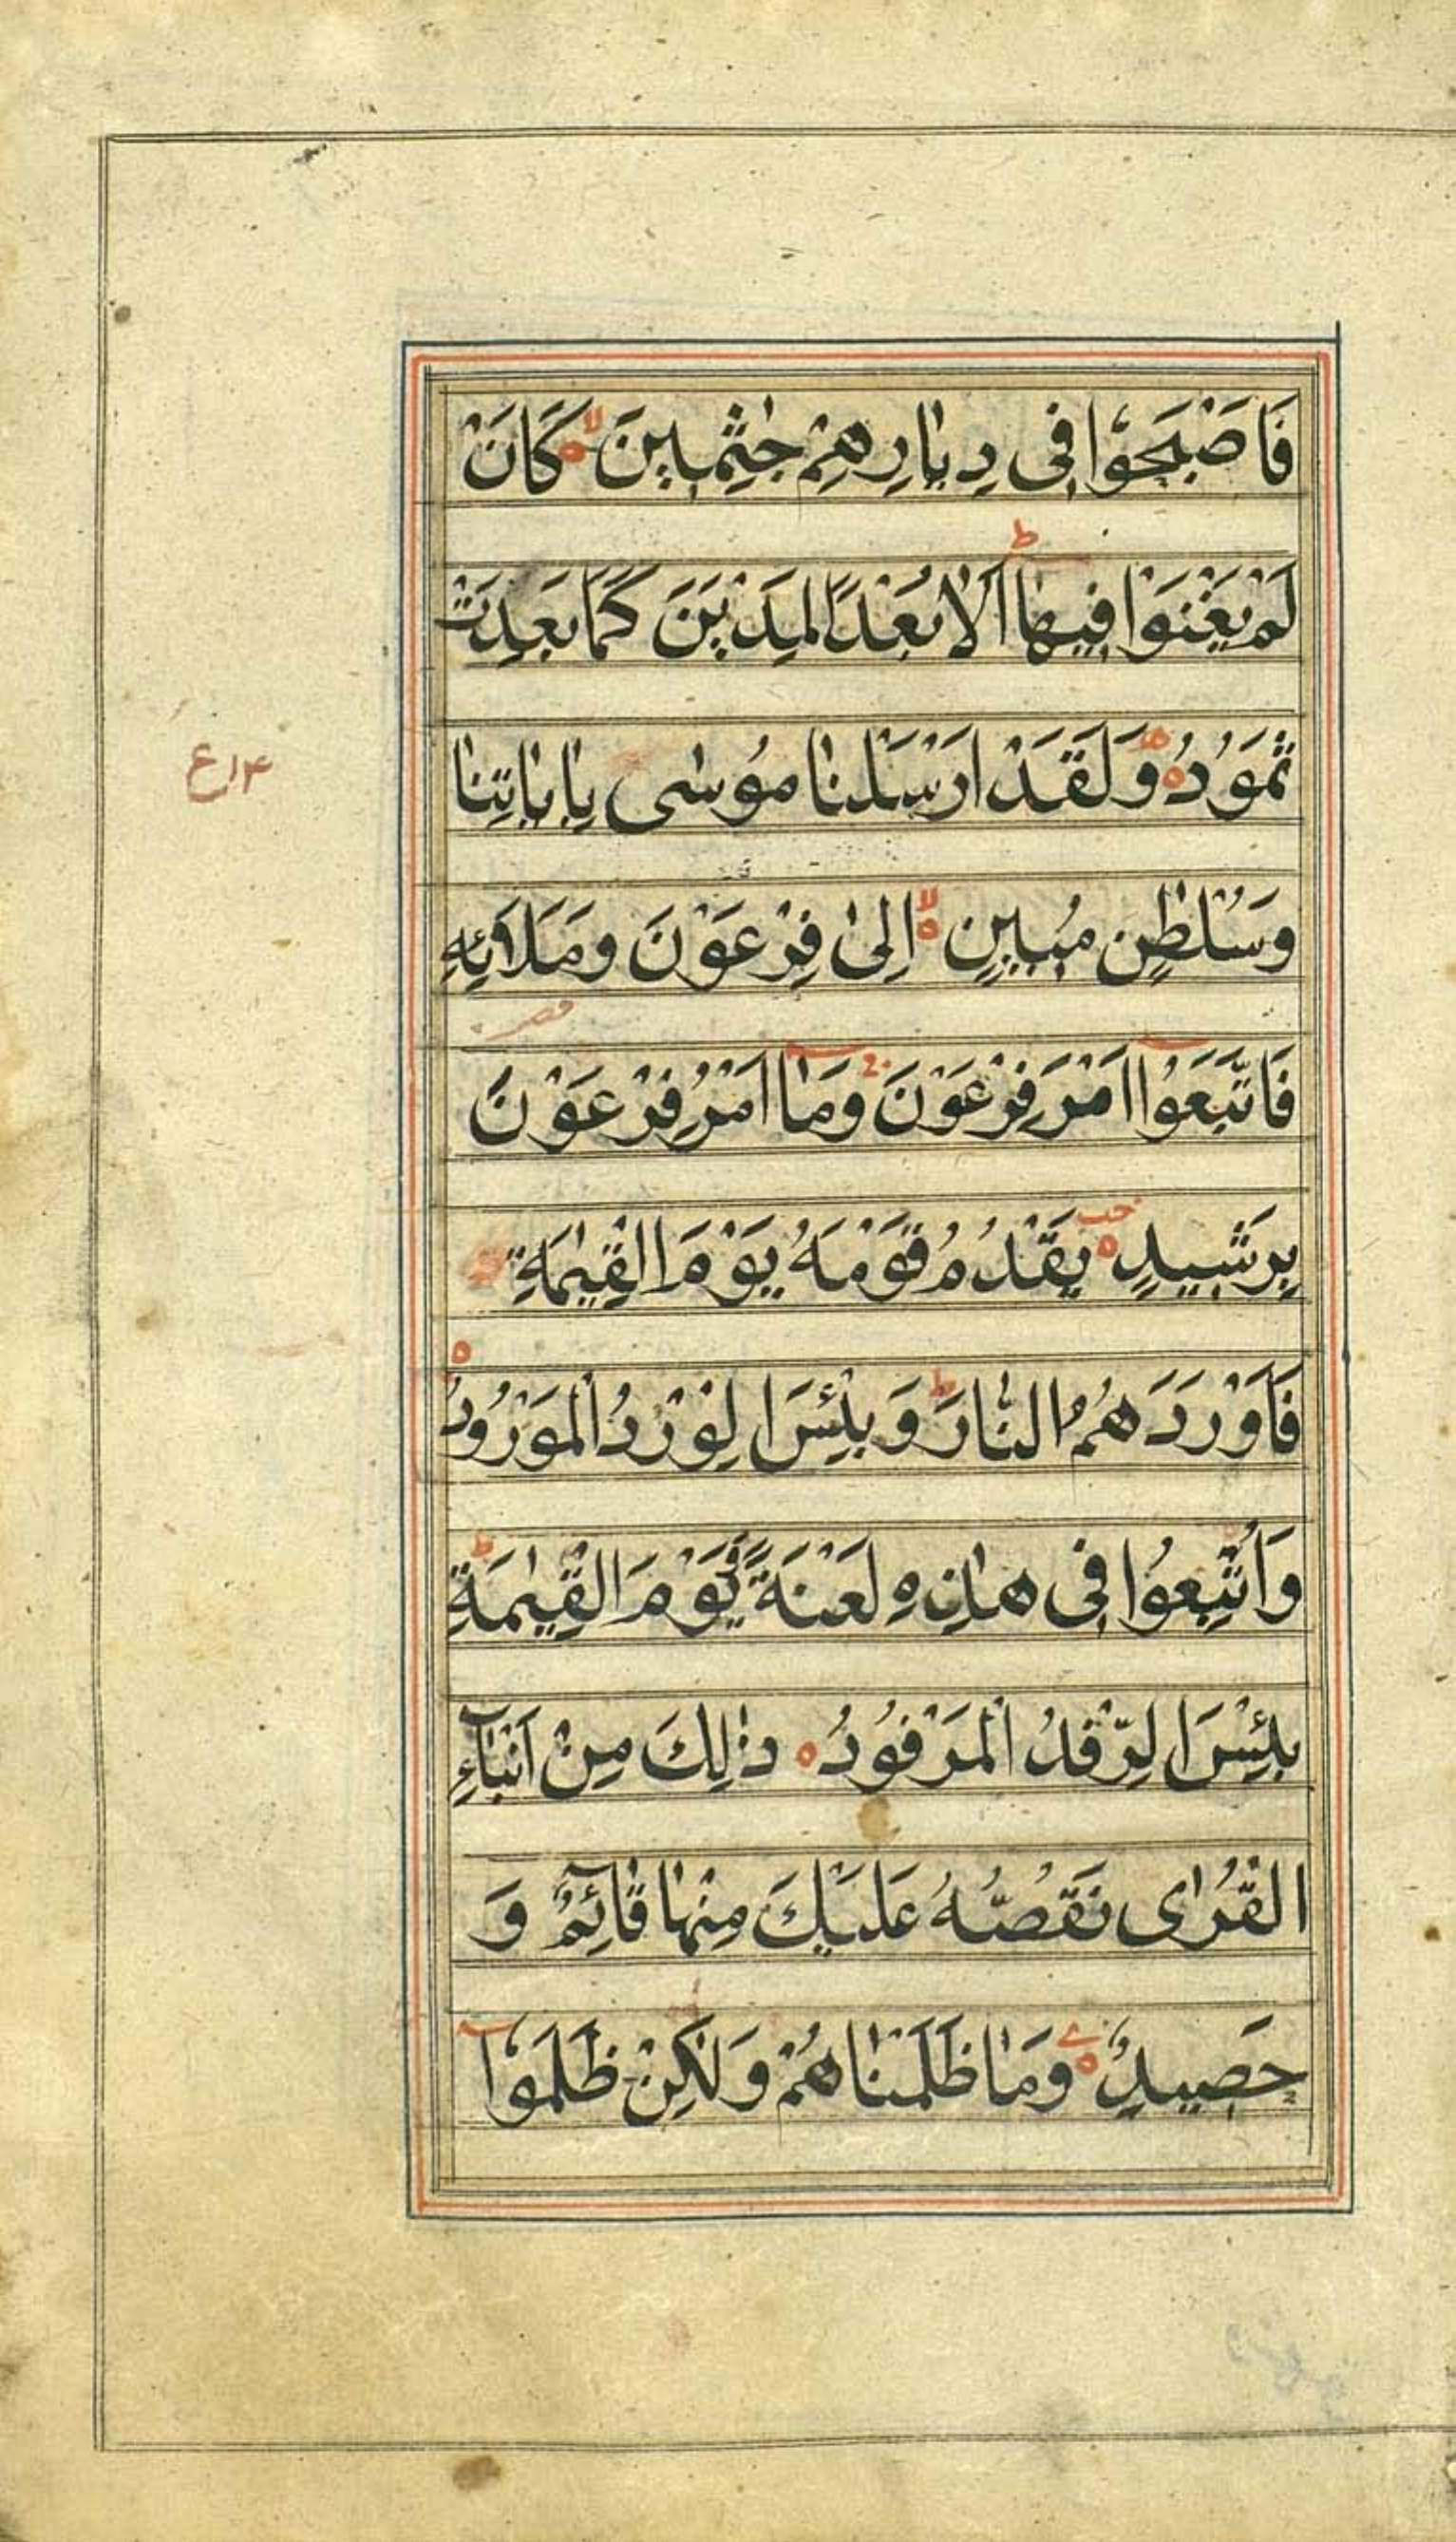 فَاَصْبَحُوْا فِى دِيٰارِهِمْ جٰثِمِينَ لا كَانَ
لَمْ يَغْنَوْا فِيهٰا ط اَلَا بُعْدًا لِمَدْيَنَ كَمَا بَعِدَتْ
ثَمُوَدُ وَلَقَدْ اَرْسَلْنٰا مُوسٰى بِاٰيٰاتِنٰا
ع١٤
وَسُلْطٰنٍ مُبِينٍ لا اِلىٰ فِرْعَوْنَ وَمَلَا۟ئِهِ
فَاتَّبَعُوا اَمْرَ فِرْعَوْنَ وَمٰا اَمْرُ فِرْعَوْنَ
بِرَشِيدٍ يَقْدُمُ قَوْمَهُ يَوْمَ الْقِيٰمَةِ
فَاَوْرَدَهُمُ النّٰارَ ط وَبِئْسَ الِوْرْدُ الْمَوْرُودُ
وَاُتْبِعُوا فِى هٰذِهِ لَعْنَةً يَوْمَ الْقِيٰمَةِ ط
بِئْسَ الِرّفْدُ الْمَرْفُوْدُ ذٰلِكَ مِنْ اَنْبٰآءِ
الْقُرٰاى نَقُصُّهُ عَلَيْكَ مِنْهٰا قٰآئِمٌ وَ
حَصِيدٌ وَمٰا ظَلَمْنٰاهُمْ وَلٰكِنْ ظَلَمُوْآ